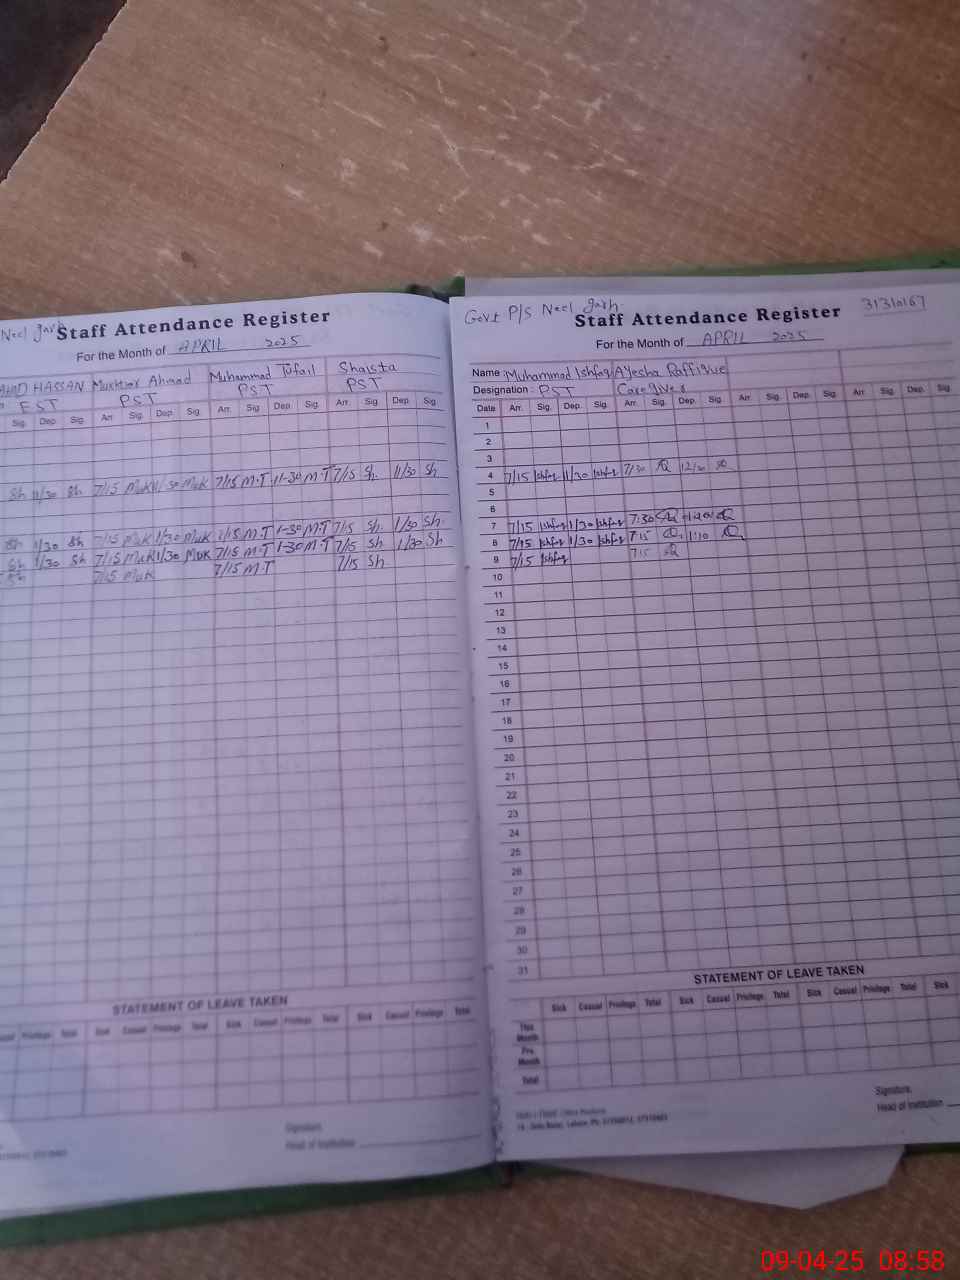 Neel garh
Staff Attendance Register
For the Month of APRIL 2025
HASSAN Mukhtar Ahmad Muhammad Tufail Shaista
EST PST PST PST
Sig. Dep. Sig. Arr. Sig. Dep. Sig. Arr. Sig. Dep. Sig. Arr. Sig. Dep. Sig.
Sh 11/30 Sh 7/15 Muk 11/30 Muk 7/15 M.T 11-30 M.T 7/15 Sh. 11/30 Sh
Sh 1/30 Sh 7/15 Muk 1/30 Muk 7/15 M.T 1-30 M.T 7/15 Sh. 1/30 Sh.
Sh 1/30 Sh 7/15 Muk 1/30 Muk 7/15 M.T 1-30 M.T 7/15 Sh 1/30 Sh
Sh 7/15 Muk 7/15 M.T 7/15 Sh
STATEMENT OF LEAVE TAKEN
Casual Privilege Total Sick Casual Privilege Total Sick Casual Privilege Total Sick Casual Privilege Total
Signature.
Head of Institution
Govt P/S Neel garh.
31310167
Staff Attendance Register
For the Month of APRIL 2025
Name : Muhammad Ishfaq Ayesha Raffique
Designation : PST Caregiver
Date Arr. Sig. Dep. Sig. Arr. Sig. Dep. Sig. Arr. Sig. Dep. Sig. Arr. Sig. Dep. Sig.
1
2
3
4 7/15 Ishfaq 11/30 Ishfaq 7/30 AR 12/30 AR
5
6
7 7/15 Ishfaq 1/30 Ishfaq 7:30 AR AR
8 7/15 Ishfaq 1/30 Ishfaq 7:15 AR 1:10 AR
9 7/15 Ishfaq 7:15 AR
10
11
12
13
14
15
16
17
18
19
20
21
22
23
24
25
26
27
28
29
30
31
STATEMENT OF LEAVE TAKEN
Sick Casual Privilege Total Sick Casual Privilege Total Sick Casual Privilege Total Sick
This Month
Pre. Month
Total
Signature.
Head of Institution
09-04-25 08:58